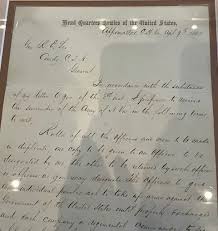 Head Quarters Armies of the United States,
Appomattox C.H. Va. Apl 9th 1865
Gen. R. E. Lee
Comdg C.S.A.
General
In accordance with the substance
of my letter to you of the 8th inst. I propose to receive
the surrender of the Army of N. Va. on the following terms
to wit:
Rolls of all the Officers and men to be made
in duplicate, one copy to be given to an Officer to be
designated by me the other to be retained by such officer
or officers as you may designate. The Officers to give
individual paroles not to take up arms against the
Government of the United States until properly exchanged
and each company or regimental Commander to